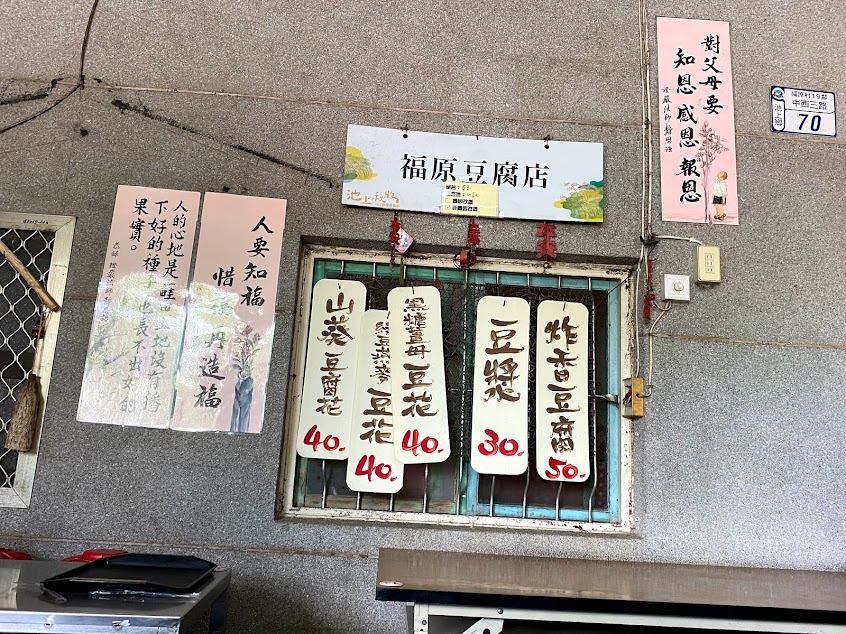 對父母要
知恩 感恩 報恩
福原村19鄰
中西三路
池上鄉
70
福原豆腐店
池上秋收
人要知福
惜福再造福
人的心地是一畦田土地沒有播
下好的種子也長不出好的
果實。
山葵豆腐花
40.
綠豆燕麥豆花
40.
黑糖薑母豆花
40.
豆漿
30.
炸香豆腐
50.